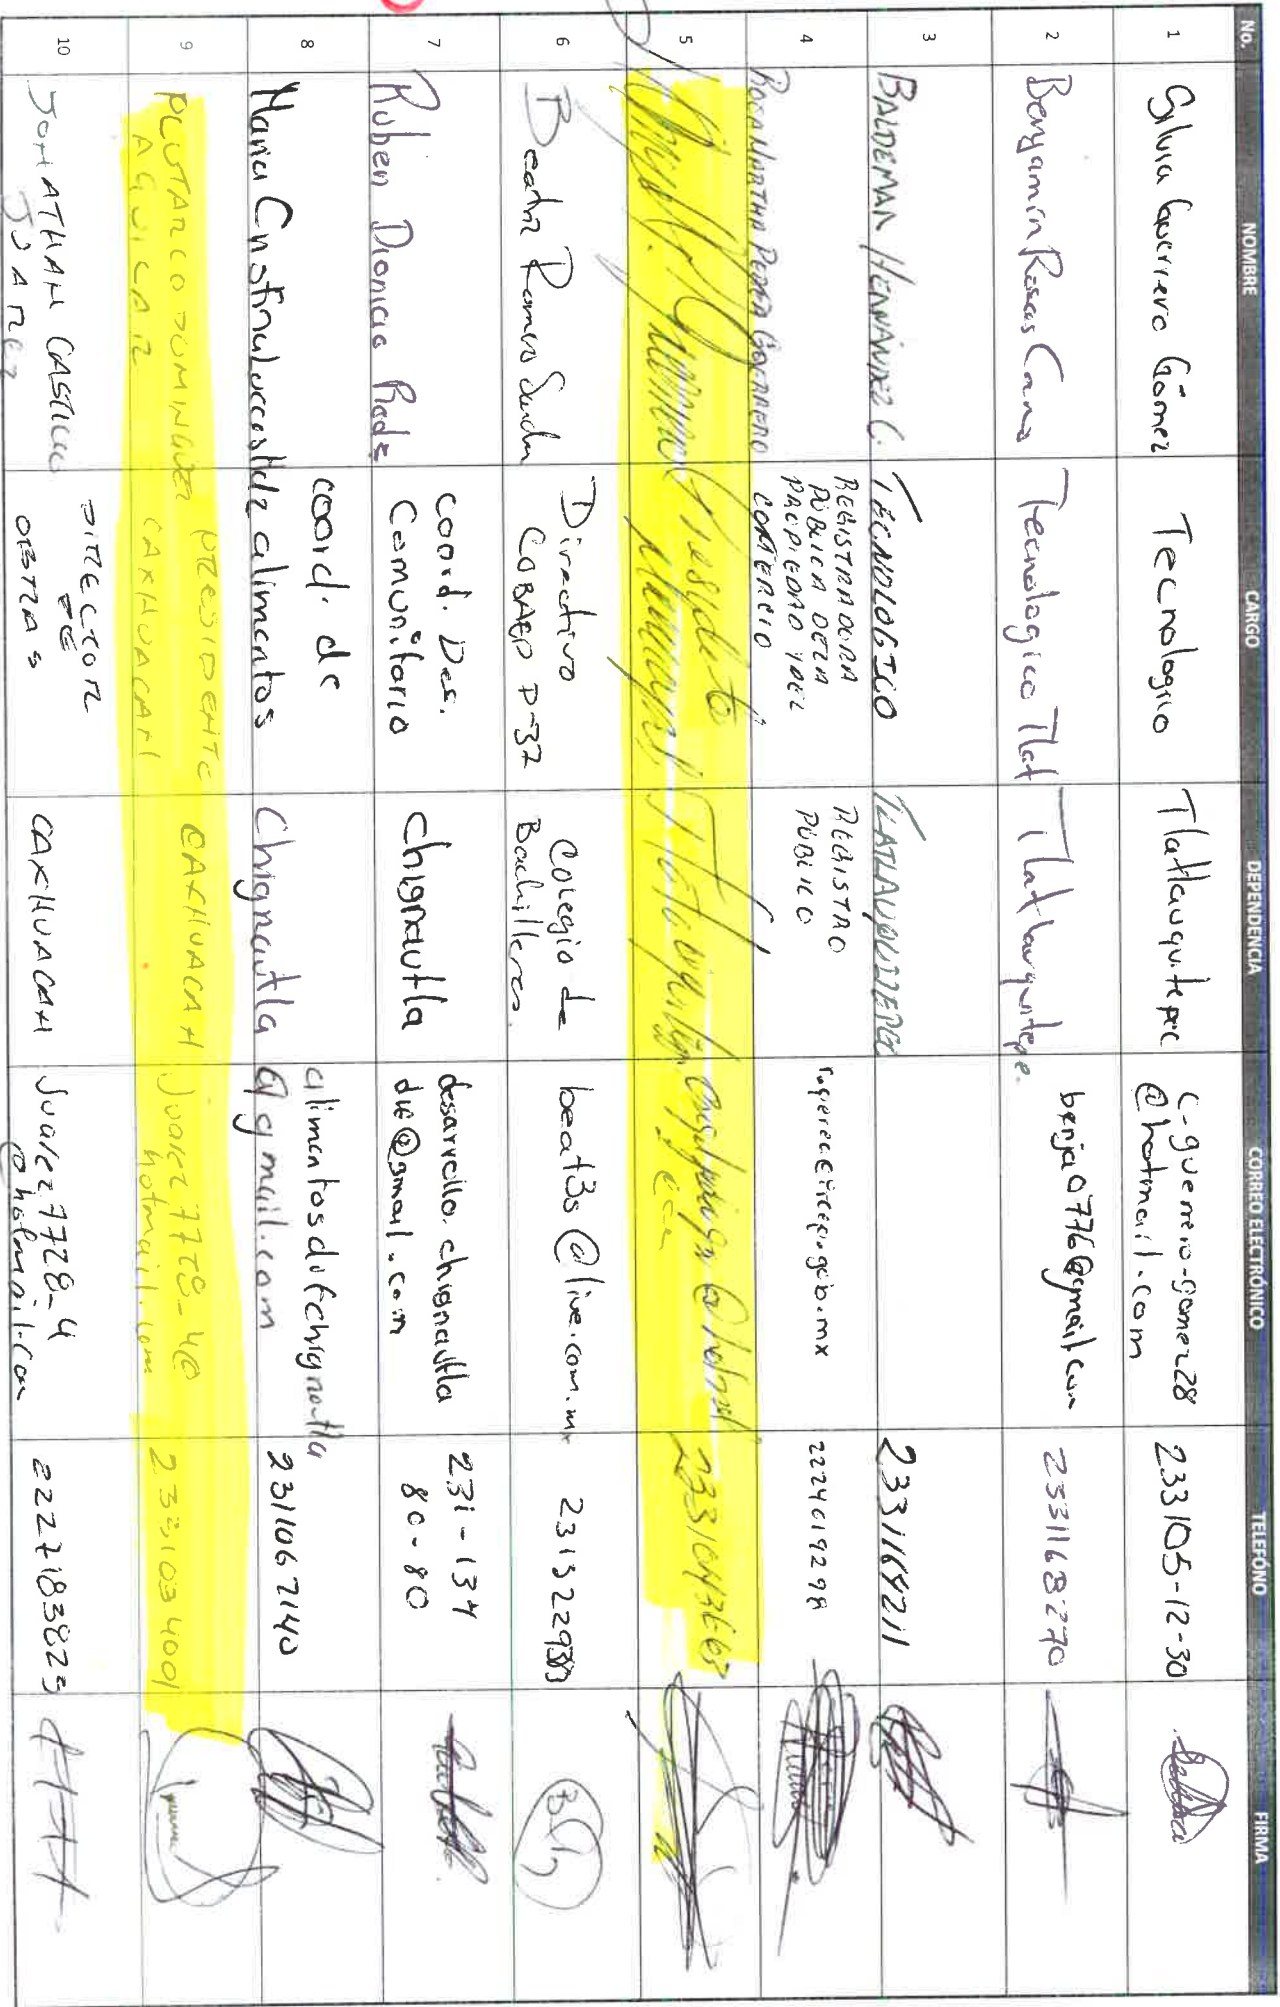 No. NOMBRE CARGO DEPENDENCIA CORREO ELECTRÓNICO TELEFÓNO FIRMA
1 Silvia Guerrero Gómez Tecnologico Tlatlauquitepec c-guerrero-gomez28
@hotmail.com 233105-12-30
2 Benjamin Roscas Cano Tecnologico Tlat Tlatlauquitepe. benja0776@gmail.com 2331168270
3 BALDEMAR HERNÁNDEZ C. TECNOLOGICO TLATLAUQUITEPEC 2331164211
4 ROSA MARTHA PEREA GUERRERO REGISTRADORA
PÚBLICA DE LA
PROPIEDAD Y DEL
COMERCIO
REGISTRO
PÚBLICO
.gob.mx 2224019298
5 Presidente 2331043667
6 Beatriz Romero Directivo
COBAEP P-37
Colegio de
Bachilleres.
beat3s@live.com.mx
7 Ruben Dionicio coord. Des.
Comunitario
Chignautla
desarrollo.chignautla
dif@gmail.com
231-134
80-80
8 Maria Cristina coord. de
alimentos
Chignautla
alimentosdifchignautla
@gmail.com
2311067140
9 PLUTARCO DOMINGUEZ
AGUILAR
PRESIDENTE
CAXHUACAN
CAXHUACAN
Juarez7728-4@
hotmail.com
2331034001
10 JONATHAN CASTILLO
JUAREZ
DIRECTOR
DE
OBRAS
CAXHUACAN
Juarez7728-4
@hotmail.com
2227183823